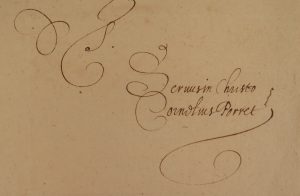 Seruus in Christo
Cornelius Porret